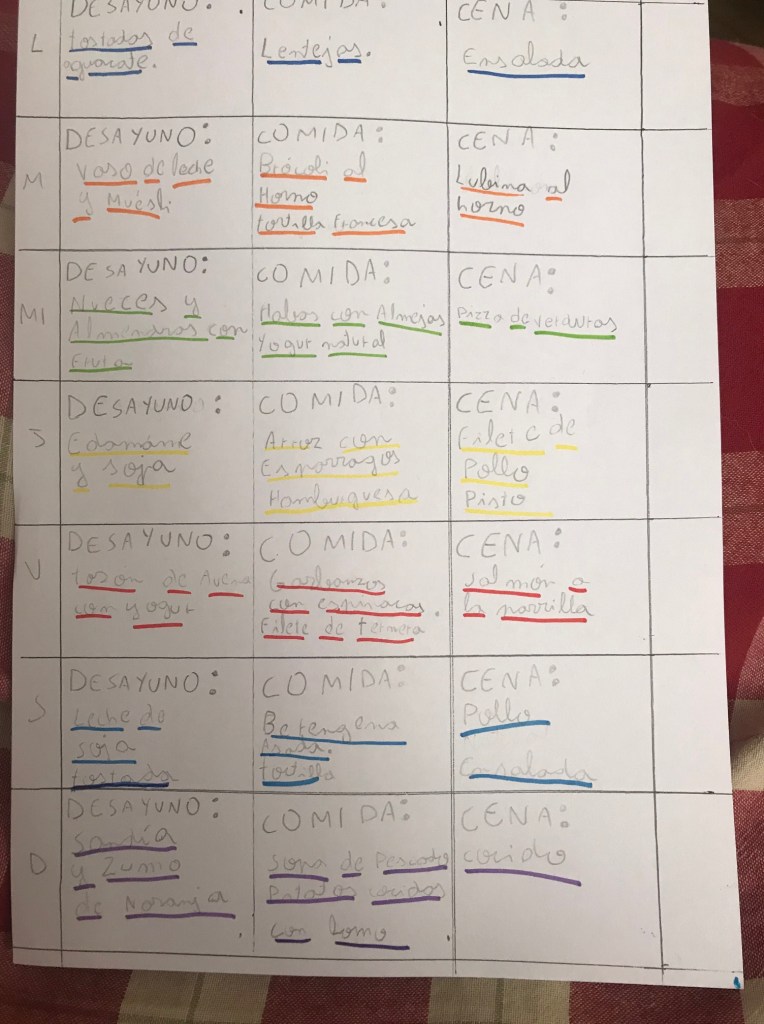 L
DESAYUNO:
tostadas de
aguacate.
COMIDA:
Lentejas.
CENA:
Ensalada
M
DESAYUNO:
Vaso de leche
y Muesli
COMIDA:
Brócoli al
Horno
tortilla Francesa
CENA:
Lubina al
horno
MI
DESAYUNO:
Nueces y
Almendras con
Fruta
COMIDA:
Habas con Almejas
Yogur natural
CENA:
Pizza de verduras
J
DESAYUNO:
Edamame
y soja
COMIDA:
Arroz con
Esparragos
Hamburguesa
CENA:
Filete de
Pollo
Pisto
V
DESAYUNO:
tazon de Avena
con yogur
COMIDA:
Garbanzos
con espinacas.
Filete de ternera
CENA:
Salmón a
la parrilla
S
DESAYUNO:
Leche de
soja
tostada
COMIDA:
Betengena
Asada.
tortilla
CENA:
Pollo
Ensalada
D
DESAYUNO:
Sandía
y Zumo
de Naranja
COMIDA:
Sopa de Pescado
Patatas cocidas
con Lomo
CENA:
cocido